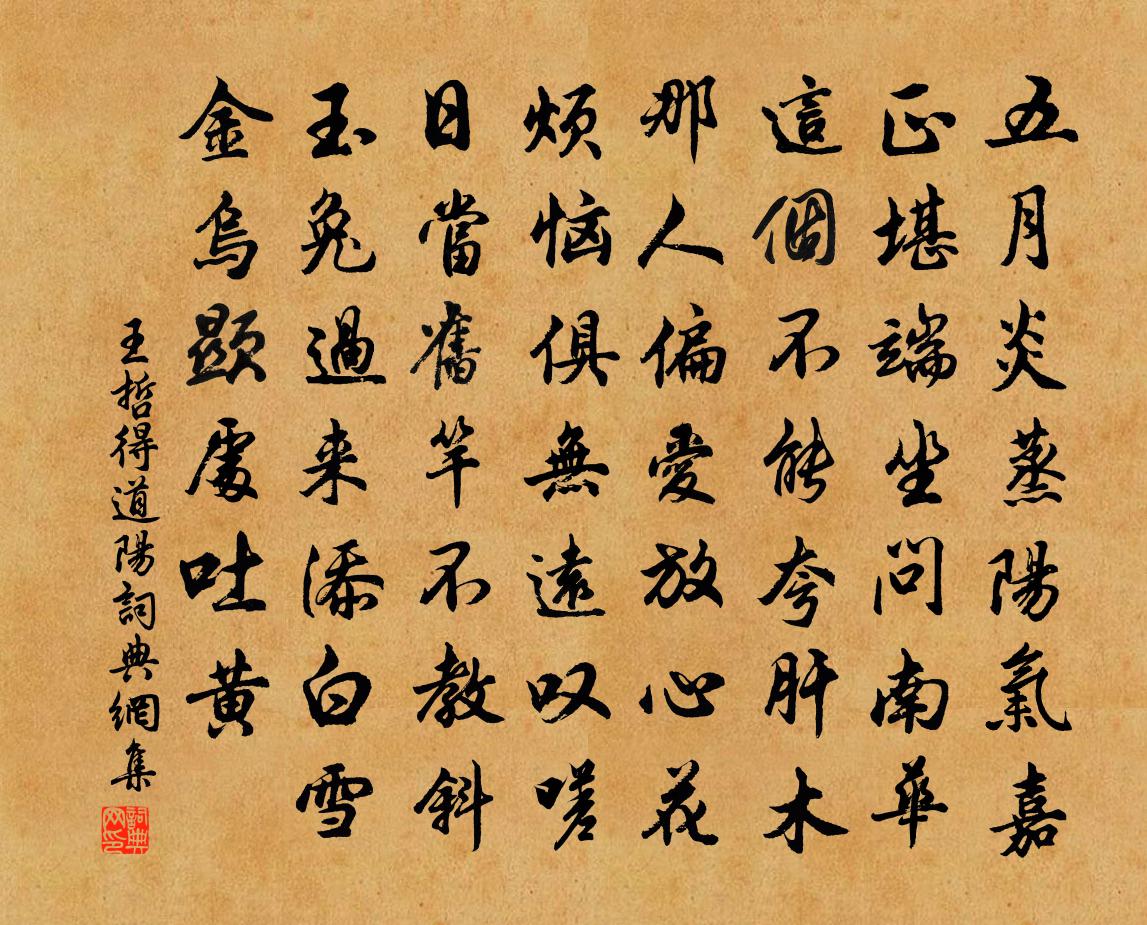 五月炎蒸陽氣嘉
正堪端坐問南華
這個不能夸肝木
那人偏愛放心花
煩惱俱無遠叹嗟
日當舊竿不教斜
玉兔過来添白雪
金烏顯處吐黄
王哲得道陽詞典網集
詞典网印